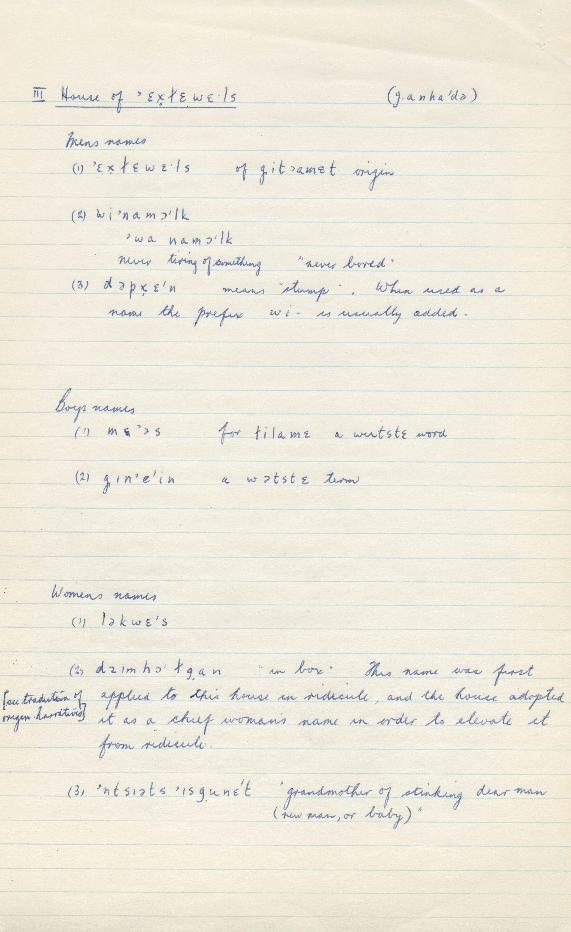 III House of 'ɛx̣łɛwɛ·ls (g̣anha'də)
Mens names
(1) 'ɛx̣łɛwɛ·ls of gitɔamɛt origin
(2) wi'namɔ'lk
'wa namɔ'lk
never tiring of something "never bored"
(3) dəpx̣ɛ'n means "stump". When used as a
name the prefix wi- is usually added.
Boys names
(1) mɛ'ɔs for łilamɛ a wutstɛ word
(2) g̣ın'e'in a wətstɛ term
Womens names
(1) ləkwɛ's
(2) dzımhɔ'łg̣an "in box" This name was first
applied to this house in ridicule, and the house adopted
[see tradition of
origin-narrative]
it as a chief woman's name in order to elevate it
from ridicule.
(3) 'ntsıəts 'isg̣unɛ't "grandmother of stinking dear man
(new man, or baby)"